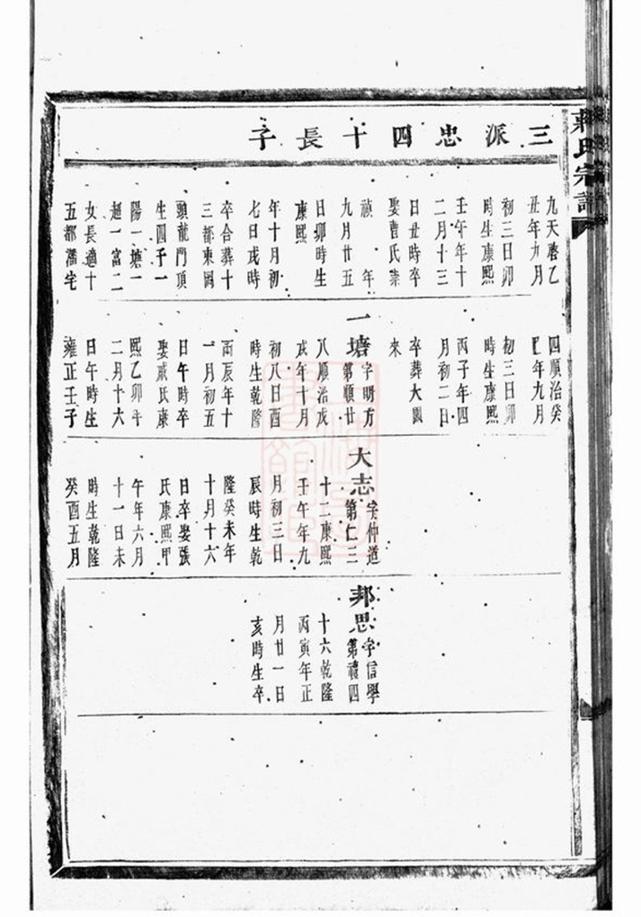 三派忠四十長子
氏宗譜
九天啓乙
丑年九月
初三日卯
時生康熙
壬午年十
二月十三
日丑時卒
娶曹氏崇
禎年
九月廿五
日卯時生
康熙
年十月初
七日戌時
卒合葬十
三都東園
頭龍門頂
生四子一
陽一塘一
超一富二
女長適十
五都潘宅
四順治癸
年九月
初三日卯
時生康熙
丙子年四
月初二日
卒葬大園
來
一塘字明方
第順廿
八順治戊
戌年十月
初八日酉
時生乾隆
丙辰年十
一月初五
日午時卒
娶戚氏康
熙乙卯年
二月十六
日午時生
雍正壬子
大志字仲道
第仁三
十二康熙
壬午年九
月初三日
辰時生乾
隆癸未年
十月十六
日卒娶張
氏康熙甲
午年六月
十一日未
時生乾隆
癸酉五月
邦思字信學
第禮四
十六乾隆
丙寅年正
月廿一日
亥時生卒